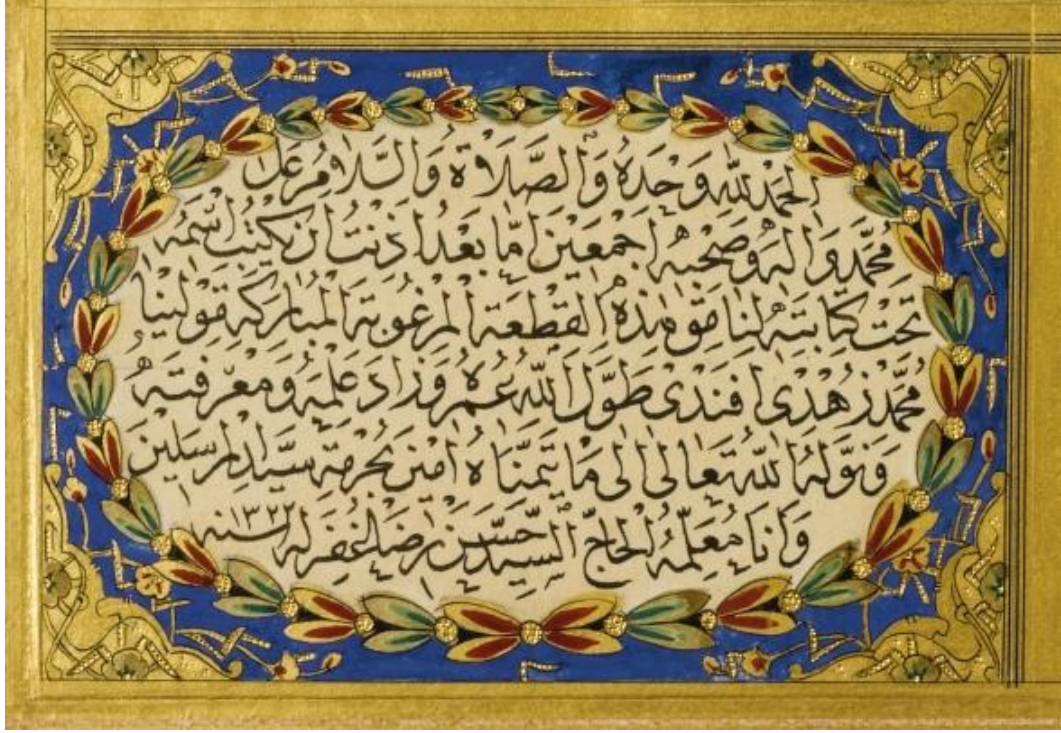 الحمد لله وحده والصلاة والسلام على
محمد واله وصحبه اجمعين اما بعد اذنت ان يكتب اسمه
تحت كتابته لنامق هذه القطعة المرغوبة المباركة
محمد زهدى افندى طول الله عمره وزاد علمه ومعرفته
ونوله الله تعالى الى ما يتمناه امين بحرمة سيد المرسلين
وانا معلمه الحاج السيد حسن رضا غفر له سنه ١٣٢٢